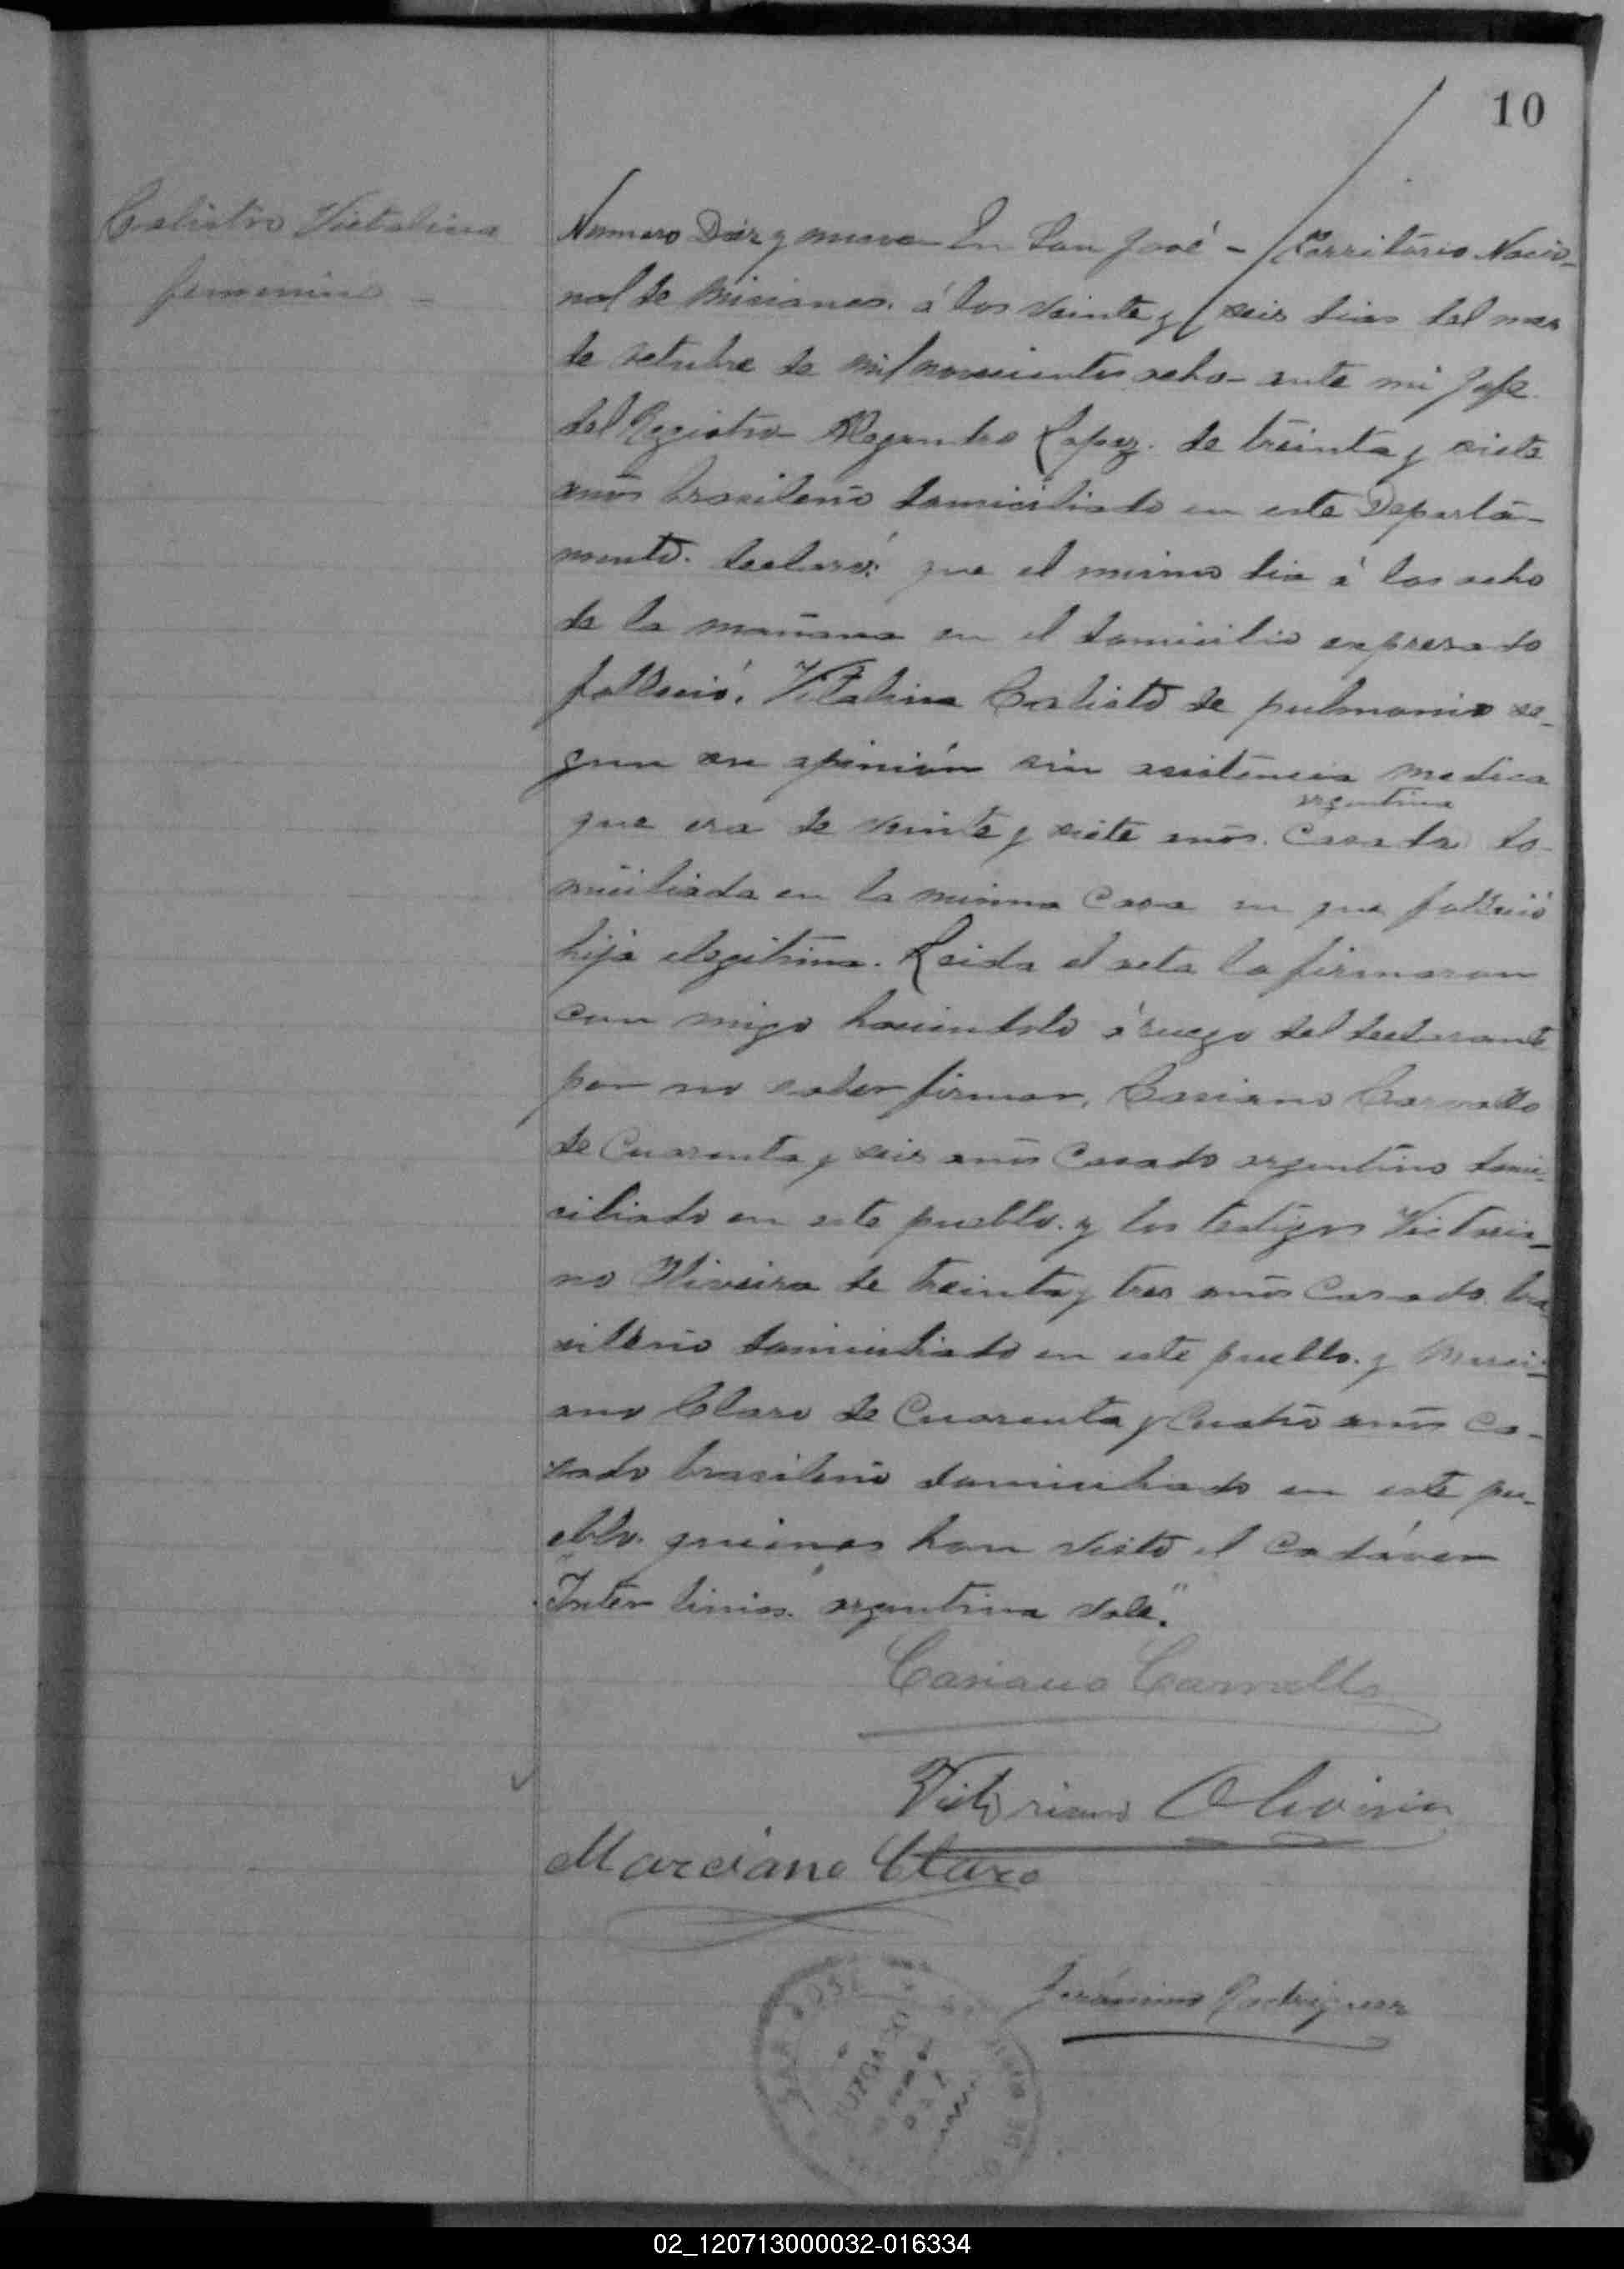 10
Calistro Victalina
femenino -
Numero Diez y nueve En San José - Territorio Nacio-
nal de Misiones. á los veinte y seis dias del mes
de octubre de mil novecientos ocho- ante mi Jefe
del Registro Alejandro Lopez. de treinta y siete
años brasilero domiciliado en este Departa-
mento. declaró: que el mismo dia á las ocho
de la mañana en el domicilio expresado
falleció. Vitalina Calisto de pulmonia se-
gun su opinión sin asistencia medica
argentina
que era de veinte y siete años. Casada do-
miciliada en la misma Casa en que falleció
hija elegitima. Leida el acta la firmaron
con migo haciendolo á ruego del declarante
por no saber firmar, Casiano Carvallo
de Cuarenta y seis años Casado argentino domi-
ciliado en este pueblo. y los testigos Victoria-
no Oliveira de treinta y tres años Casado. bra
silerio domiciliado en este pueblo. y Marci-
ano Claro de Cuarenta y Cuatro años Ca-
sado brasilerio domiciliado en este pu-
eblo. quienes han visto el Cadáver
"Inter linias." argentina vale".
Casiano Carvallo
Victoriano Oliveira
Marciano Claro
Jerónimo Rodriguez
SAN JOSE
02_120713000032-016334